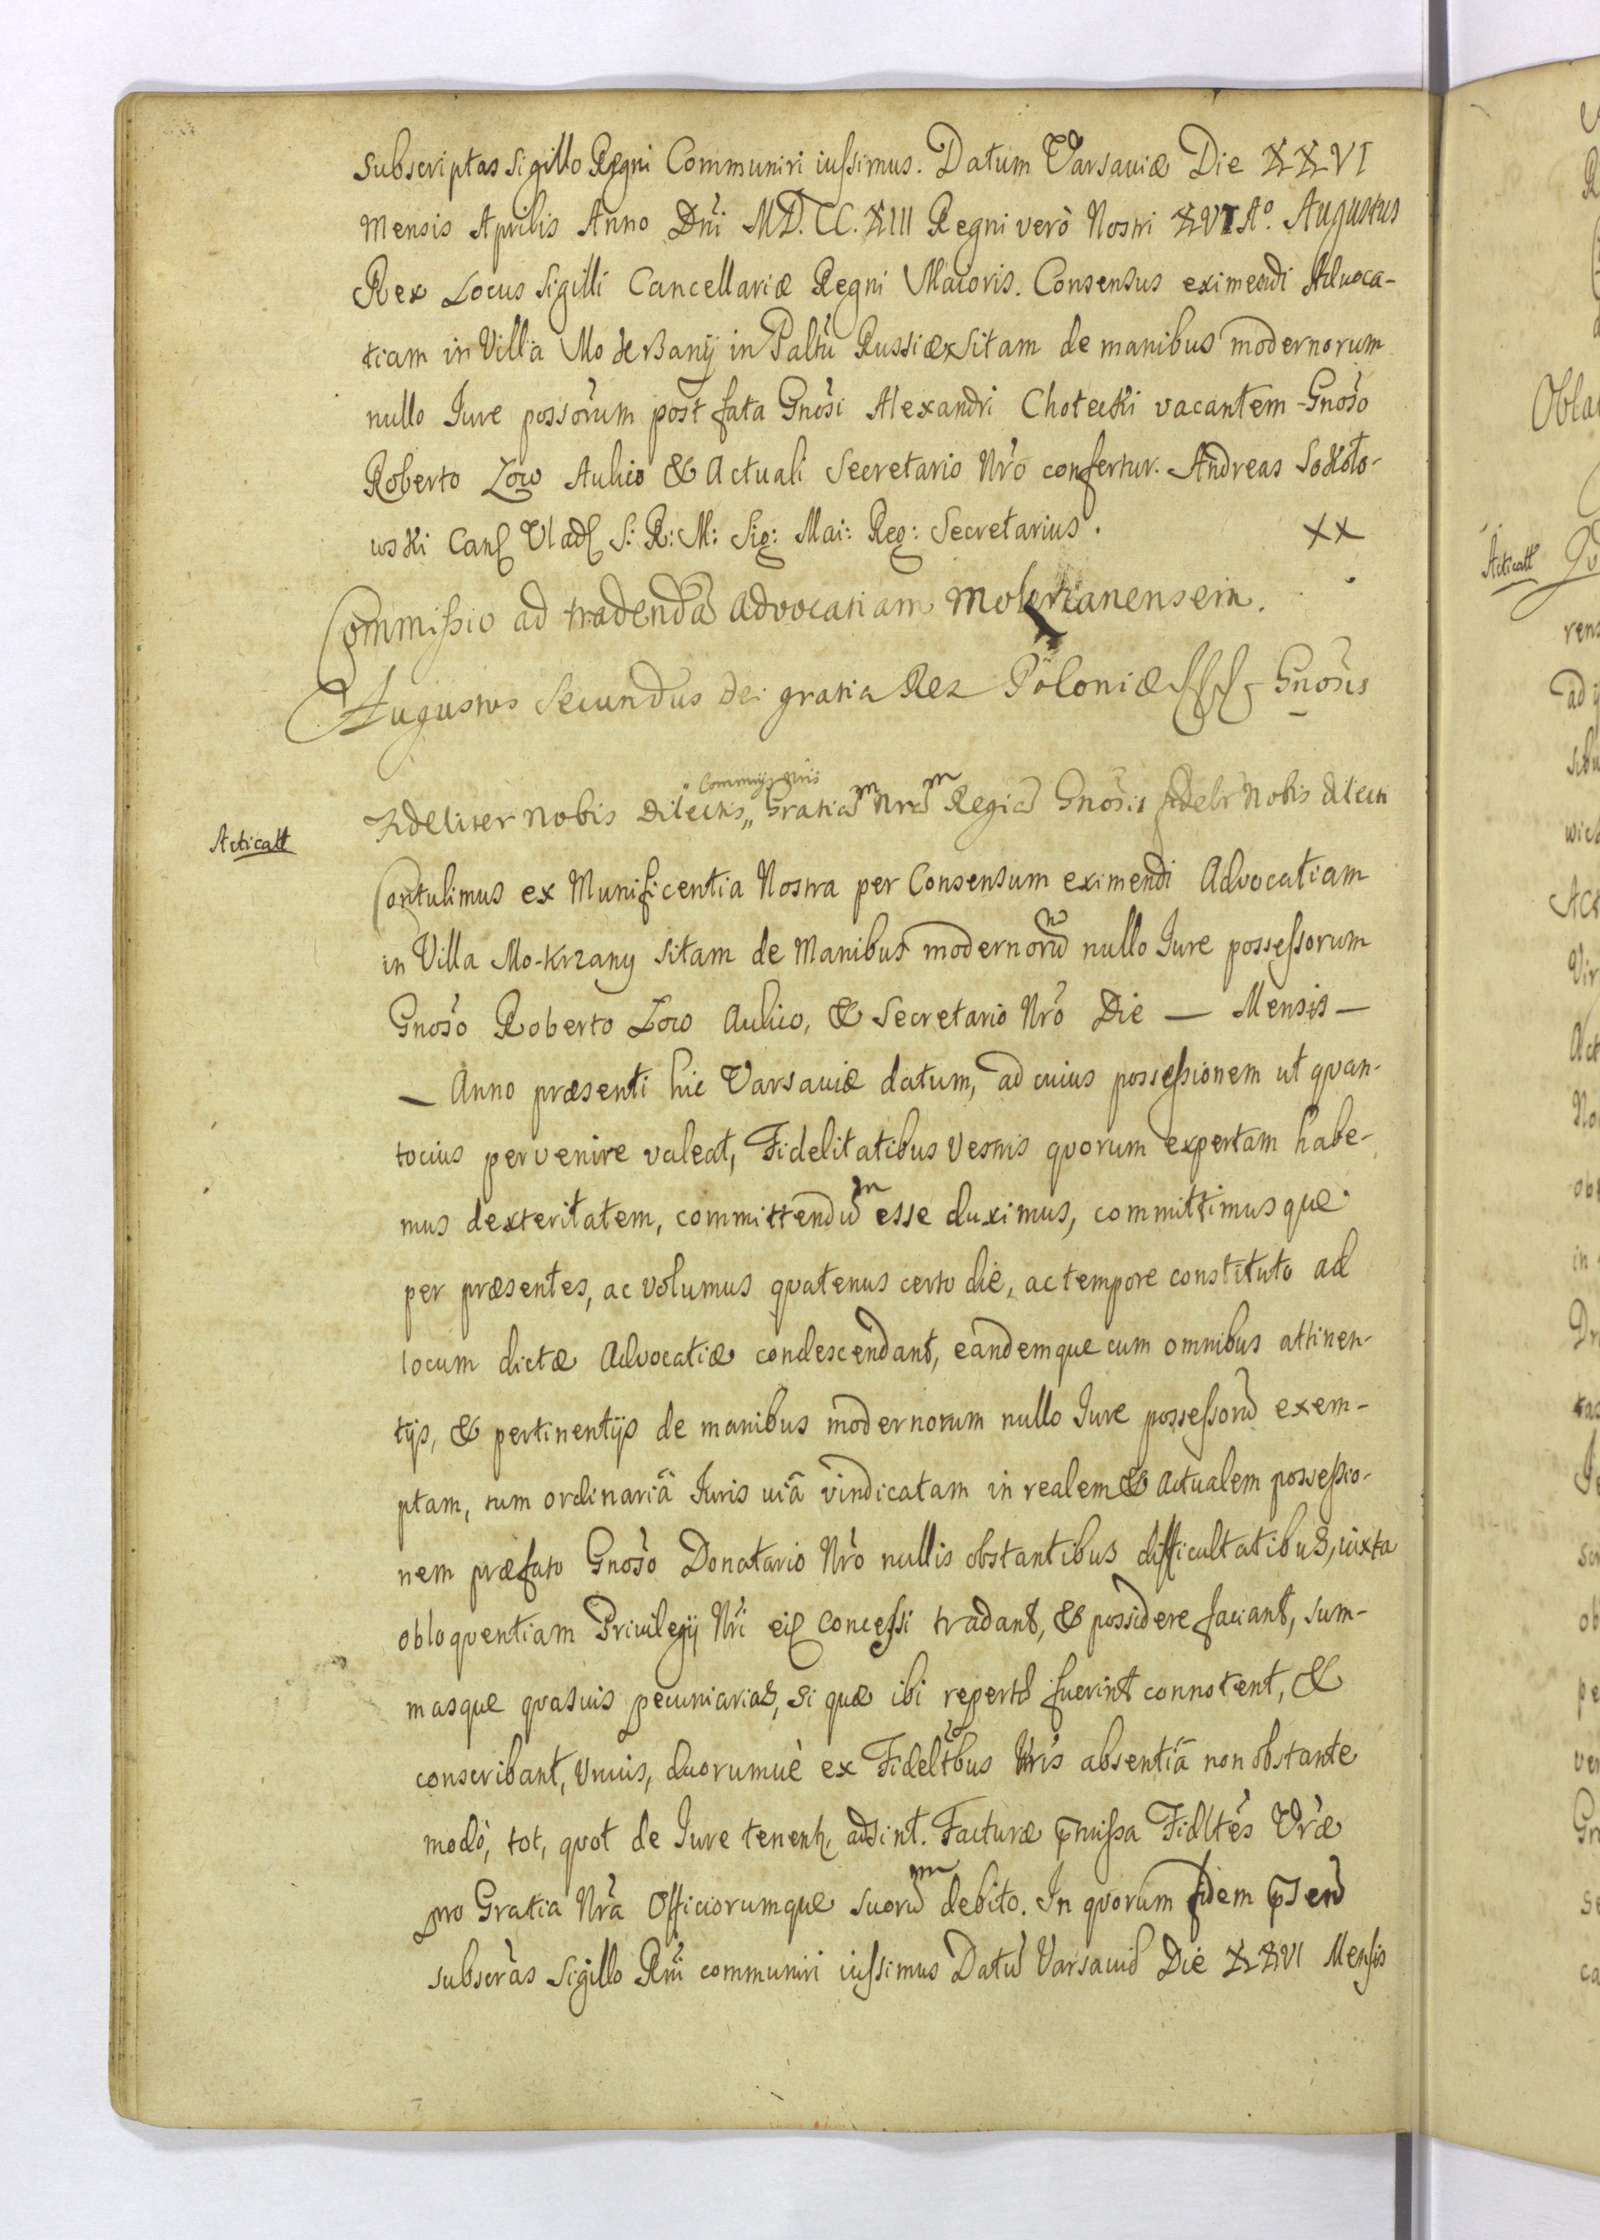 subscriptas sigillo Regni Communiri iussimus. Datum Varsaviæ Die XXVI
Mensis Aprilis Anno Dni MD.CC.XIII Regni verò Nostri XVI Aº. Augustus
Rex Locus Sigilli Cancellariæ Regni Maioris. Consensus eximendi Aduoca-
tiam in Villa Mokrzanÿ in Paltu Russiæ sitam de manibus modernorum
nullo Jure possorum post fata Gnosi Alexandri Chotecki vacantem Gnoso
Roberto Low Aulico & Actuali Secretario Nro confertur. Andreas Sokoło-
wski Can Vlad S: R: M: Sig: Mai: Reg: Secretarius. XX
Commissio ad tradendã Advocatiam Mokrzanensem.
Augustus Secundus Dei gratia Rex Poloniæ Gnosis
Acticatt
Fideliter Nobis Dilectis Gratiam Nram Regiã Gnosis fideltr Nobis dilecti
Contulimus ex Munificentia Nostra per Consensum eximendi Advocatiam
in Villa Mo-krzany sitam de Manibus modernorũ nullo Jure possessorum
Gnoso Roberto Low Aulico, & Secretario Nro Die — Mensis —
— Anno præsenti hic Varsaviæ datum, ad cuius possessionem ut qvan-
tocius pervenire valeat, Fidelitatibus Vestris qvorum expertam habe-
mus dexteritatem, committendũ esse duximus, committimusque
per præsentes, ac volumus qvatenus certo die, ac tempore constituto ad
locum dictæ Advocatiæ condescendant, eandemque cum omnibus attinen-
tijs, & pertinentijs de manibus modernorum nullo Jure possessorũ exem-
ptam, tum ordinariâ Juris uiâ vindicatam in realem & Actualem possessio-
nem præfato Gnoso Donatario Nro nullis obstantibus difficultatibus, iuxta
obloqventiam Privilegij Nri ei Concessi tradant, & possidere faciant, sum-
masque qvasuis pecuniarias, si quæ ibi repertæ fuerint connotent, &
conscribant, Vnius, duorumuè ex Fideltbus Vris absentiâ non obstante
modò, tot, qvot de Jure tenent, adsint. Facturæ pmissa Fidltes Vræ
pro Gratia Nra Officiorumque suorũ debito. In qvorum fidem
subscras Sigillo Rni communiri iussimus Datũ Varsaviæ Die XXVI Mensis
Acticatt